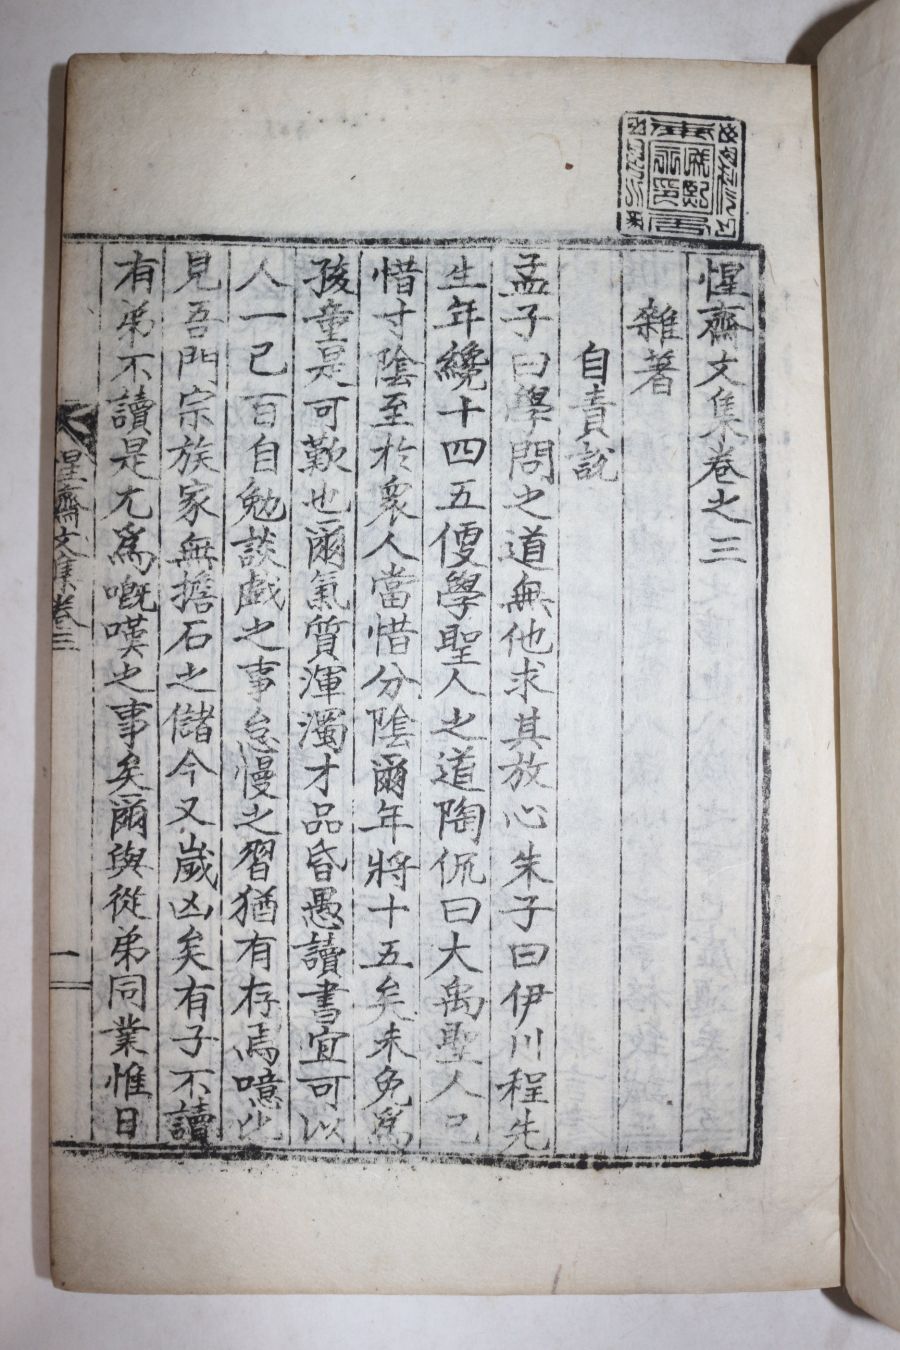 惺齋文集卷之三
雜著
自責說
孟子曰學問之道無他求其放心朱子曰伊川程先
生年纔十四五便學聖人之道陶侃曰大禹聖人已
惜寸陰至於衆人當惜分陰爾年將十五矣未免爲
孩童是可歎也爾氣質渾濁才品昏愚讀書宜可以
人一己百自勉談戲之事怠慢之習猶有存焉噫
見吾門宗族家無擔石之儲今又歲凶矣有子不讀
有弟不讀是尤爲嘅嘆之事矣爾與從弟同業惟日
惺齋文集卷三
一